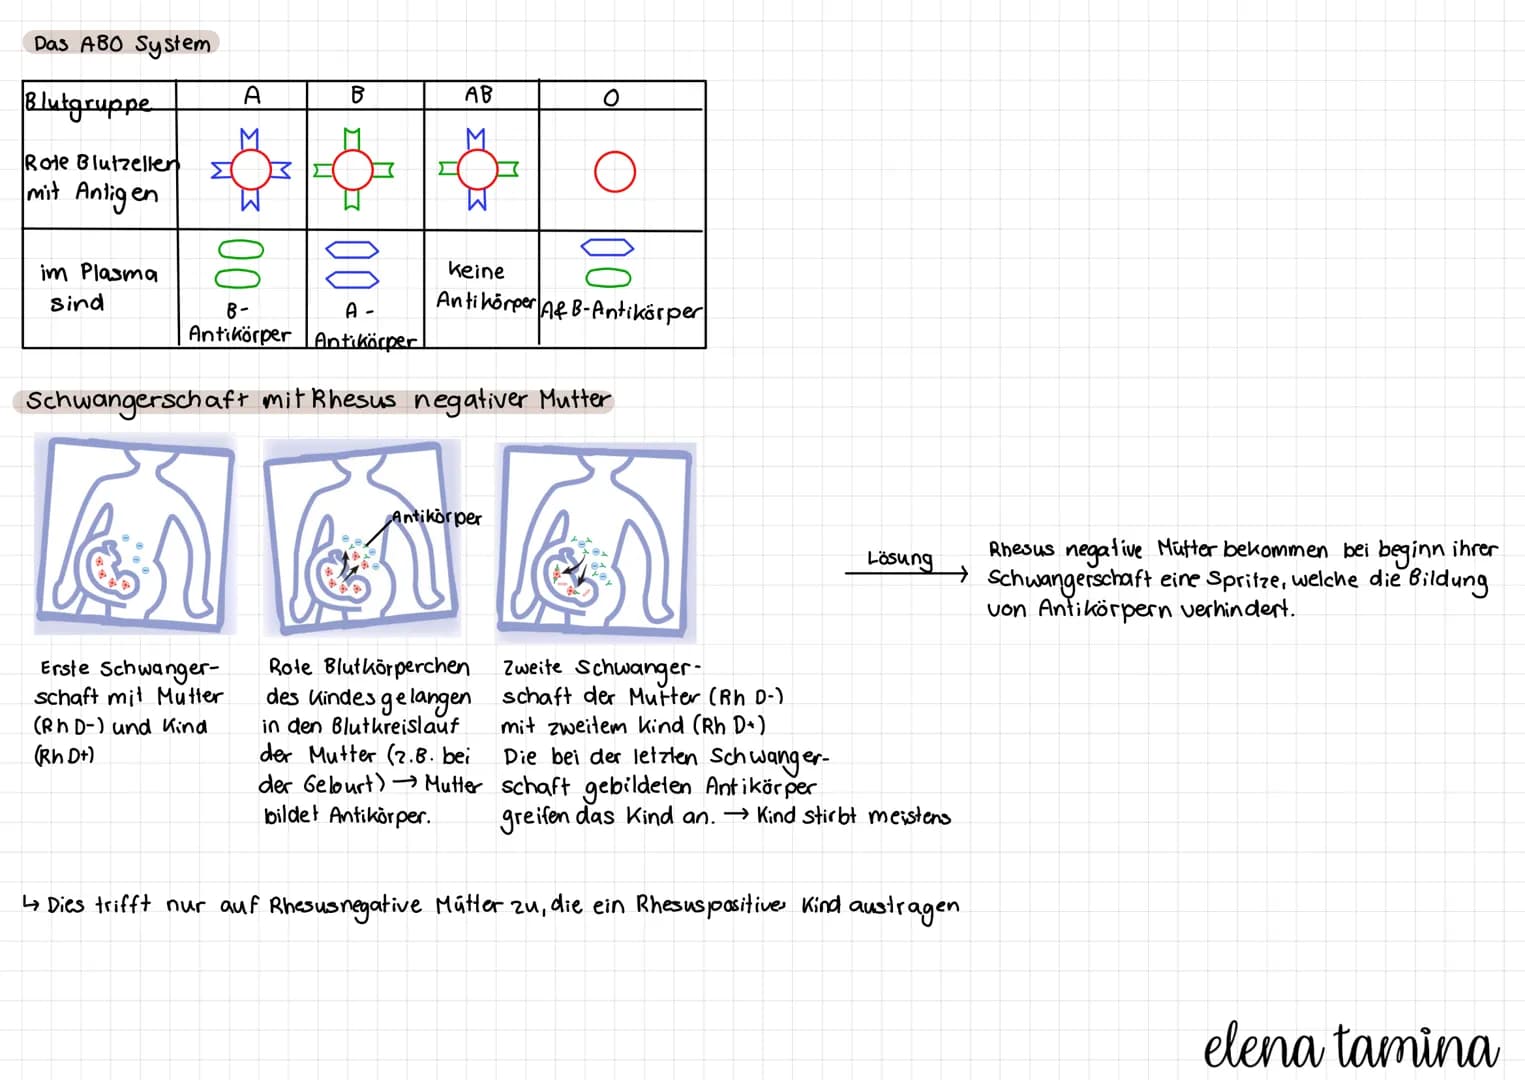 Das ABO System
Blutgruppe A B AB O
Rote Blutzellen
mit Antigen
im Plasma
sind
B-
Antikörper
A-
Antikörper
keine
Antikörper
A&B-Antikörper
Schwangerschaft mit Rhesus negativer Mutter
Antikörper
Erste Schwanger-
schaft mit Mutter
(Rh D-) und Kind
(Rh D+)
Rote Blutkörperchen
des Kindes gelangen
in den Blutkreislauf
der Mutter (z.B. bei
der Geburt) → Mutter
bildet Antikörper.
Zweite Schwanger-
schaft der Mutter (Rh D-)
mit zweitem Kind (Rh D+)
Die bei der letzten Schwanger-
schaft gebildeten Antikörper
greifen das Kind an. → Kind stirbt meistens
Lösung
Rhesus negative Mütter bekommen bei beginn ihrer
Schwangerschaft eine Spritze, welche die Bildung
von Antikörpern verhindert.
↳ Dies trifft nur auf Rhesusnegative Mütter zu, die ein Rhesuspositives Kind austragen
elena tamina